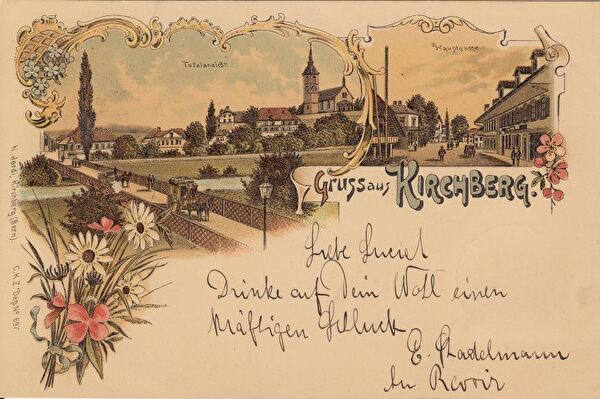 Totalansicht.
Hauptgasse.
Gruss aus KIRCHBERG.
Liebe
Drinke auf Dein Woll einen
kräftigen Schluck
E. Stadelmann
Au Revoir
H. Jordi, Kirchberg (Bern).
C.K.Z. Dep. № 687